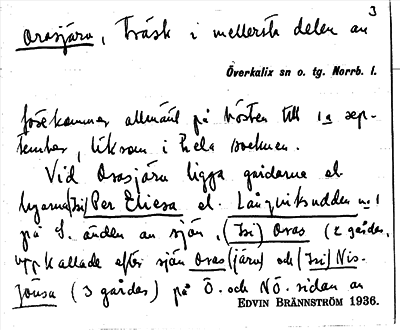 3
Orasjärv, Träsk i mellersta delen av
Överkalix sn o. tg. Norrb. l.
förekommer allmänt på hösten till 1a sep-
tember, liksom i hela socknen.
Vid Orasjärv ligga gårdarna el.
byarna (hsi) Per Eliesa el. Långviksudden nr 1
på S. änden av sjön, (hsi) Oras (2 gårdar,
uppkallade efter sjön Oras (järv) och (hsi) Nis-
Jönsa (3 gårdar) på Ö. och NÖ. sidan av
EDVIN BRÄNNSTRÖM 1936.